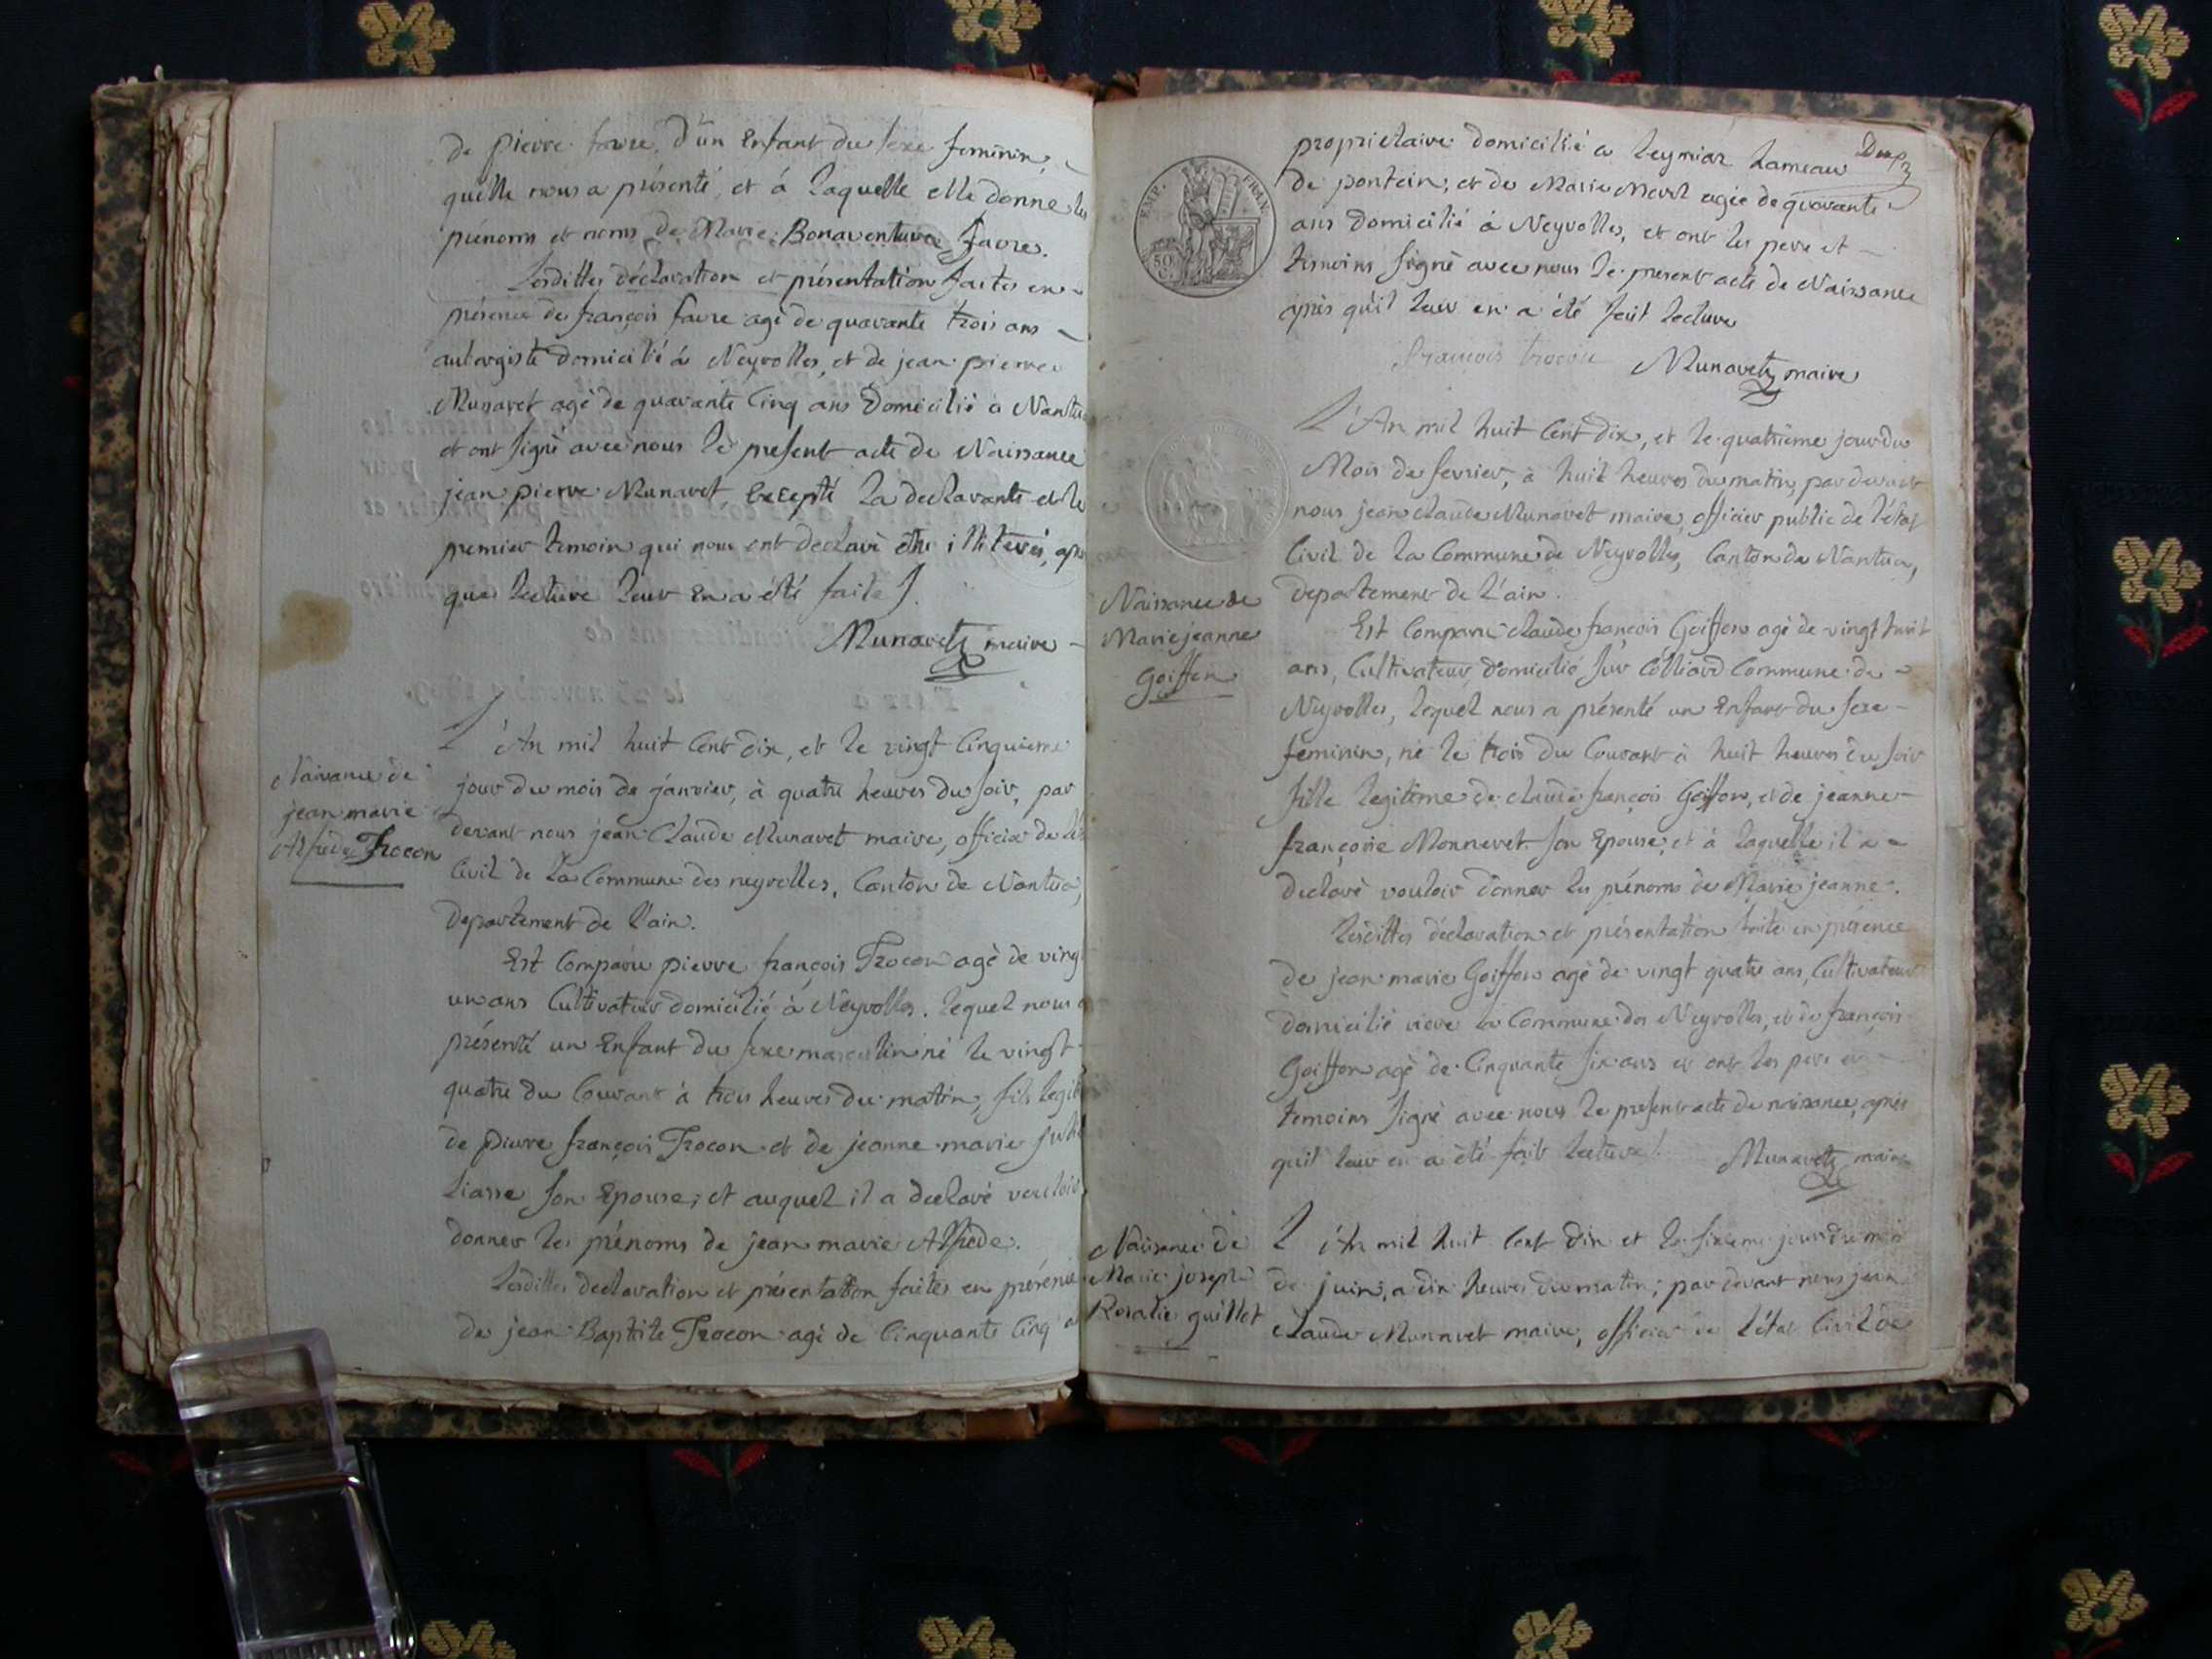 de pierre favre, d'un Enfant du sexe feminin,
qu'elle nous a présenté, et á laquelle elle donne les
prénoms et noms de Marie Bonaventure favre.
Lesdittes déclaration et présentation faites en
présence de françois favre agé de quarante trois ans
aubergiste domicilié á Neyrolles, et de jean pierre
Munavet agé de quarante Cinq ans Domicilié á Nantua
et ont signé avec nous le present acte de Naissance
jean pierre Munavet, Excepté la declarante et le
premier temoin qui nous ont declaré être illiterés, après
que lecture leur en a été faite.
Munavet maire
Naissance de
jean marie
Alfrede Trocon
L'An mil huit Cent dix, et le vingt Cinquieme
jour du mois de janvier, à quatre heures du soir, par
devant nous jean Claude Munavet maire, officier de l'ét
Civil de la Commune des neyrolles, Canton de Nantua,
Departement de l'ain.
Est Comparu pierre françois Trocon agé de vingt
un ans Cultivateur domicilié à Neyrolles. lequel nous a
présenté un Enfant du sexe masculin né le vingt
quatre du Courant à trois heures du matin, fils legit
de pierre françois Trocon et de jeanne marie
Liasse son Epouse; et auquel il a declaré vouloir
donner les prénoms de jean marie Alfrede.
Lesdittes declaration et présentation faites en présence
de jean Baptiste Trocon agé de Cinquante Cinq a
proprietaire domicilié a leymiaz hameau
de poncin, et de Marie agée de quarante
ans domicilié à Neyrolles, et ont les pere et
temoins signé avec nous le present acte de Naissance
après qu'il leur en a été fait lecture
françois trocon Munavet maire
EMP. FRAN.
50
C.
L'An mil huit Cent dix, et le quatrième jour du
Mois de fevrier, à huit heures du matin, par devant
nous jean Claude Munavet maire, officier public de l'état
Civil de la Commune de Neyrolles, Canton de Nantua,
departement de l'ain.
Naissance de
Marie jeanne
Goiffon
Est Comparu Claude françois Goiffon agé de vingt huit
ans, Cultivateur, domicilié sur Colliard Commune de
Neyrolles, lequel nous a présenté un Enfant du sexe
feminin, né le trois du Courant à huit heures du soir
fille legitime de Claude françois Goiffon, et de jeanne
françoise Monnevet son Epouse, et à laquelle il a
declaré vouloir donner les prénoms de Marie jeanne.
Lesdittes déclaration et présentation faite en présence
de jean marie Goiffon agé de vingt quatre ans, Cultivateur
domicilié la Commune des Neyrolles, et de françois
Goiffon agé de Cinquante six ans et ont les pere et
temoins signé avec nous le present acte de naissance, après
qu'il leur en a été fait lecture. Munavet maire
Naissance de
Marie joseph
Rosalie guillot
L'An mil huit Cent dix et le sixieme jour du mois
de juin, a dix heures du matin; par devant nous jean
Claude Munavet maire, officier de l'état Civil de